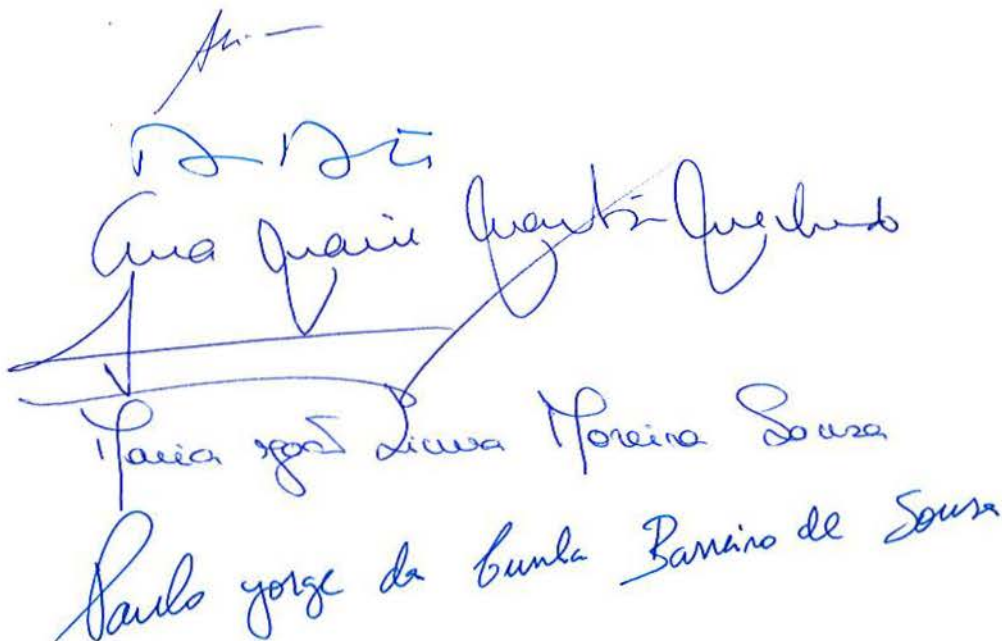 Ana Maria Martins Machado
Maria José Lima Moreira Sousa
Paulo Jorge da Cunha Barreiro de Sousa